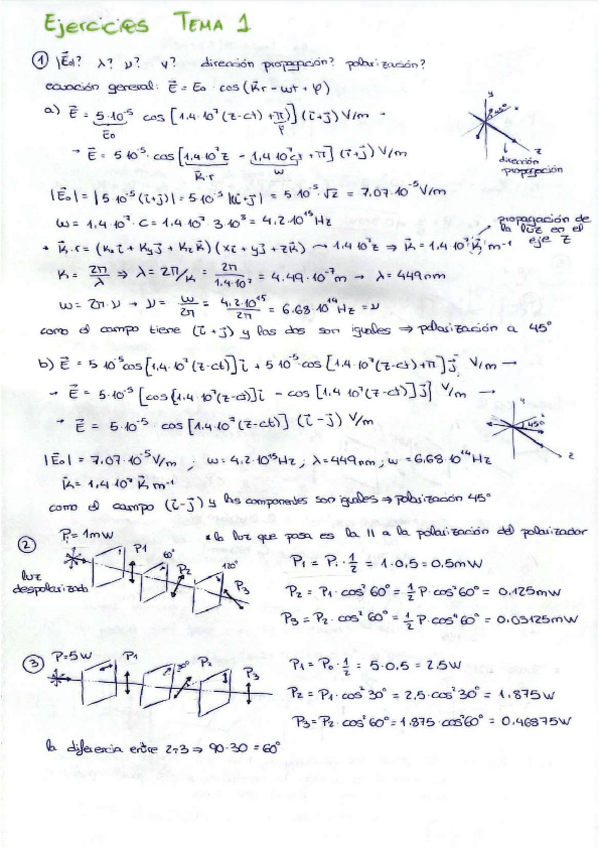 Ejercicios TEMA 1
① |E⃗o|? λ? ν? v? dirección propagación? polarización?
ecuación general: E⃗ = Eo · cos (k⃗r - wt + φ)
a) E⃗ = 5·10⁻⁵ cos [1,4·10⁷(z-ct)+π] (i⃗+j⃗) V/m →
Eo φ
→ E⃗ = 5·10⁻⁵ · cos [1,4·10⁷z - 1,4·10⁷ct + π] (i⃗+j⃗) V/m
k⃗·r w
y
45°
z
dirección propagación
|E⃗o| = |5·10⁻⁵(i⃗+j⃗)| = 5·10⁻⁵ |(i⃗+j⃗)| = 5·10⁻⁵·√2 = 7.07·10⁻⁵ V/m
w = 1,4·10⁷·c = 1,4·10⁷·3·10⁸ = 4.2·10¹⁵ Hz
* k⃗·r = (Kx i⃗ + Ky j⃗ + Kz k⃗)(x i⃗ + y j⃗ + z k⃗) → 1.4·10⁷z ⇒ k⃗ = 1,4·10⁷ k⃗ m⁻¹
propagación de la luz en el eje z
K = 2π/λ ⇒ λ = 2π/K = 2π/1.4·10⁷ = 4.49·10⁻⁷ m → λ = 449 nm
w = 2π·ν → ν = w/2π = 4.2·10¹⁵/2π = 6.68·10¹⁴ Hz = ν
como el campo tiene (i⃗+j⃗) y las dos son iguales ⇒ polarización a 45°
b) E⃗ = 5·10⁻⁵ cos [1,4·10⁷(z-ct)] i⃗ + 5·10⁻⁵·cos [1,4·10⁷(z-ct)+π] j⃗ V/m →
→ E⃗ = 5·10⁻⁵ [cos[1,4·10⁷(z-ct)] i⃗ - cos [1,4·10⁷(z-ct)] j⃗] V/m →
→ E⃗ = 5·10⁻⁵ cos [1,4·10⁷(z-ct)] (i⃗-j⃗) V/m
y
45°
z
|Eo| = 7.07·10⁻⁵ V/m ; w = 4.2·10¹⁵ Hz ; λ = 449 nm ; w = 6.68·10¹⁴ Hz
k⃗ = 1,4·10⁷ k⃗ m⁻¹
como el campo (i⃗-j⃗) y las componentes son iguales ⇒ polarización 45°
② Pi = 1mW
* la luz que pasa es la || a la polarización del polarizador
luz despolarizada
P1 60° P2 120° P3
P1 = Pi · 1/2 = 1·0,5 = 0.5mW
P2 = P1·cos²60° = 1/2 P·cos²60° = 0.125mW
P3 = P2·cos²60° = 1/2 P·cos⁴60° = 0.03125mW
③ P=5W
P1 30° P2 P3
P1 = Po · 1/2 = 5·0,5 = 2.5W
P2 = P1·cos²30° = 2,5·cos²30° = 1.875W
P3 = P2·cos²60° = 1.875·cos²60° = 0.46875W
la diferencia entre 2 y 3 ⇒ 90-30 = 60°